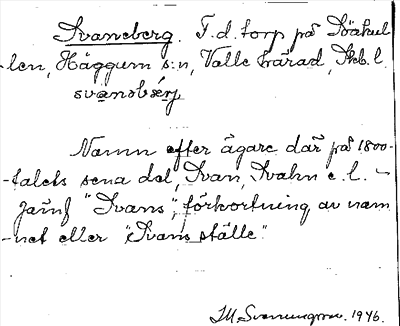 Svaneberg. F.d. torp på Bäckul-
-len, Häggum s:n, Valle härad, Skb. l.
svansbärj
Namn efter ägare där på 1800-
-talets sena del, Svan, Svahn e. l. -
Jämf "Svans", förkortning av nam-
-net eller "Svans ställe".
1946.